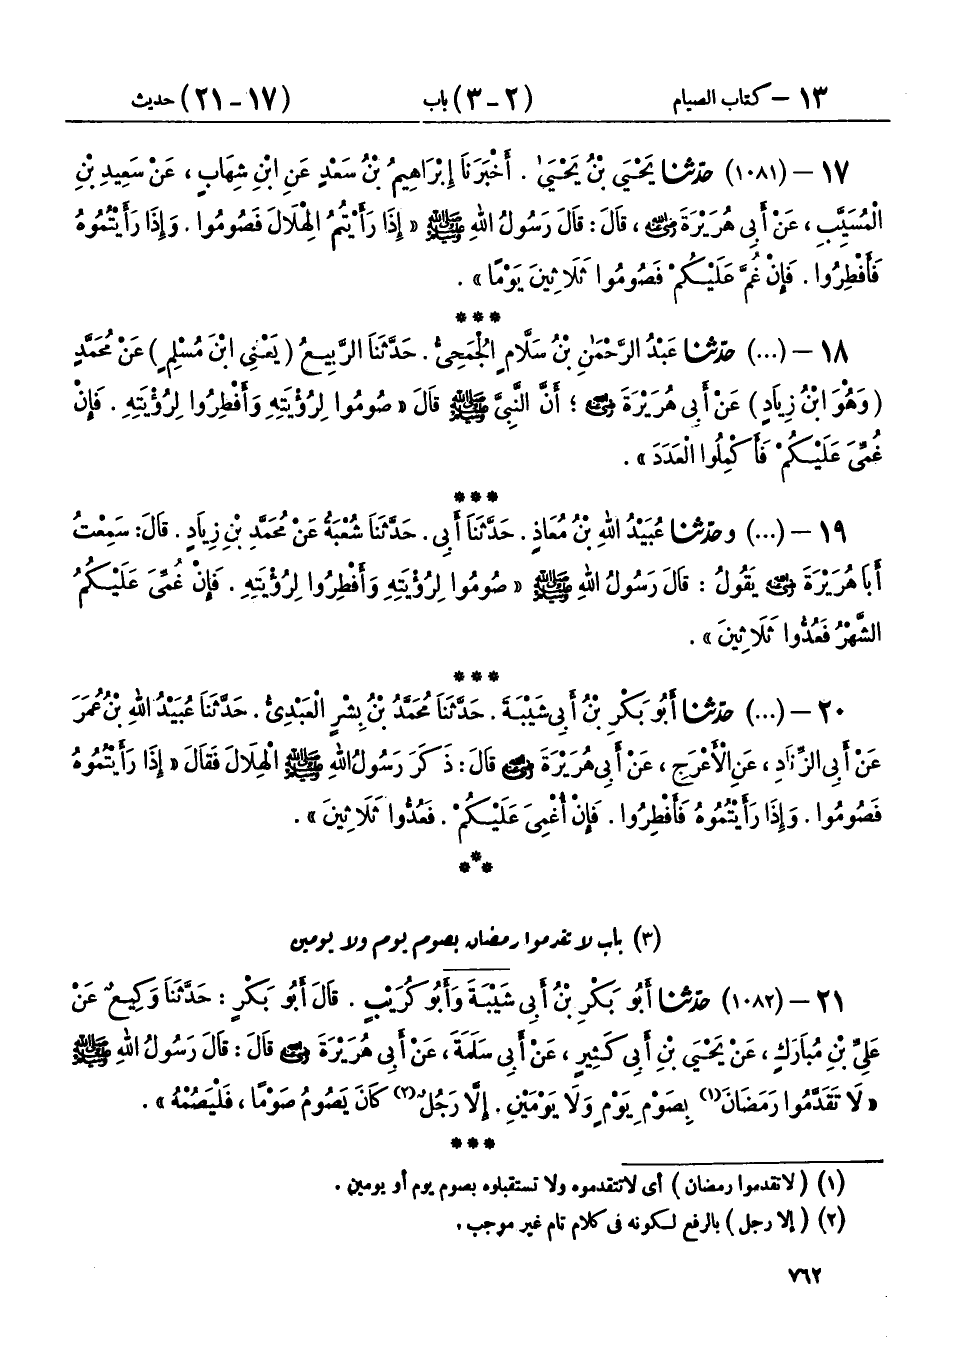 ١٣ – كتاب الصيام (٢ – ٣) باب (١٧ – ٢١) حديث
١٧ – (١٠٨١) حدّثنا يَحْيَىٰ بْنُ يَحْيَىٰ . أَخْبَرَنَا إِبْرَاهِيمُ بْنُ سَعْدٍ عَنِ ابْنِ شِهَابٍ ، عَنْ سَعِيدِ بْنِ
الْمُسَيَّبِ ، عَنْ أَبِي هُرَيْرَةَ رضي الله عنه ، قَالَ : قَالَ رَسُولُ اللهِ ﷺ « إِذَا رَأَيْتُمُ الْهِلَالَ فَصُومُوا . وَإِذَا رَأَيْتُمُوهُ
فَأَفْطِرُوا . فَإِنْ غُمَّ عَلَيْكُمْ فَصُومُوا ثَلَاثِينَ يَوْمًا » .
***
١٨ – (...) حدّثنا عَبْدُ الرَّحْمَٰنِ بْنُ سَلَّامٍ الْجُمَحِيُّ . حَدَّثَنَا الرَّبِيعُ ( يَعْنِي ابْنَ مُسْلِمٍ ) عَنْ مُحَمَّدٍ
( وَهُوَ ابْنُ زِيَادٍ ) عَنْ أَبِي هُرَيْرَةَ رضي الله عنه ؛ أَنَّ النَّبِيَّ ﷺ قَالَ « صُومُوا لِرُؤْيَتِهِ وَأَفْطِرُوا لِرُؤْيَتِهِ . فَإِنْ
غُمِّيَ عَلَيْكُمْ فَأَكْمِلُوا الْعَدَدَ » .
***
١٩ – (...) وحدّثنا عُبَيْدُ اللهِ بْنُ مُعَاذٍ . حَدَّثَنَا أَبِي . حَدَّثَنَا شُعْبَةُ عَنْ مُحَمَّدِ بْنِ زِيَادٍ . قَالَ : سَمِعْتُ
أَبَا هُرَيْرَةَ رضي الله عنه يَقُولُ : قَالَ رَسُولُ اللهِ ﷺ « صُومُوا لِرُؤْيَتِهِ وَأَفْطِرُوا لِرُؤْيَتِهِ . فَإِنْ غُمِّيَ عَلَيْكُمُ
الشَّهْرُ فَعُدُّوا ثَلَاثِينَ » .
***
٢٠ – (...) حدّثنا أَبُو بَكْرِ بْنُ أَبِي شَيْبَةَ . حَدَّثَنَا مُحَمَّدُ بْنُ بِشْرٍ الْعَبْدِيُّ . حَدَّثَنَا عُبَيْدُ اللهِ بْنُ عُمَرَ
عَنْ أَبِي الزِّنَادِ ، عَنِ الْأَعْرَجِ ، عَنْ أَبِي هُرَيْرَةَ رضي الله عنه قَالَ : ذَكَرَ رَسُولُ اللهِ ﷺ الْهِلَالَ فَقَالَ « إِذَا رَأَيْتُمُوهُ
فَصُومُوا . وَإِذَا رَأَيْتُمُوهُ فَأَفْطِرُوا . فَإِنْ أُغْمِيَ عَلَيْكُمْ . فَعُدُّوا ثَلَاثِينَ » .
***
(٣) باب لا تقدموا رمضان بصوم يوم ولا يومين
٢١ – (١٠٨٢) حدّثنا أَبُو بَكْرِ بْنُ أَبِي شَيْبَةَ وَأَبُو كُرَيْبٍ . قَالَ أَبُو بَكْرٍ : حَدَّثَنَا وَكِيعٌ عَنْ
عَلِيِّ بْنِ مُبَارَكٍ ، عَنْ يَحْيَى بْنِ أَبِي كَثِيرٍ ، عَنْ أَبِي سَلَمَةَ ، عَنْ أَبِي هُرَيْرَةَ رضي الله عنه قَالَ : قَالَ رَسُولُ اللهِ ﷺ
« لَا تَقَدَّمُوا رَمَضَانَ(١) بِصَوْمِ يَوْمٍ وَلَا يَوْمَيْنِ . إِلَّا رَجُلٌ(٢) كَانَ يَصُومُ صَوْمًا ، فَلْيَصُمْهُ » .
***
(١) ( لا تقدموا رمضان ) أى لا تتقدموه ولا تستقبلوه بصوم يوم أو يومين .
(٢) ( إلا رجل ) بالرفع لكونه فى كلام تام غير موجب .
٧٦٢